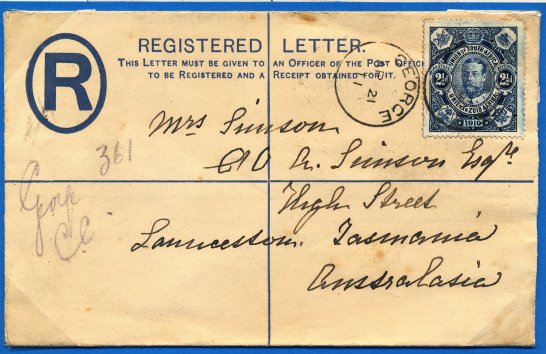 REGISTERED LETTER.
THIS LETTER MUST BE GIVEN TO AN OFFICER OF THE POST OFFIC
TO BE REGISTERED AND A RECEIPT OBTAINED FOR IT.
R
GEORGE
21
2½ 2½
1910
Mrs Simson
C/O A. Simson Esqre
High Street
Launceston. Tasmania
Australasia
361
C.C.